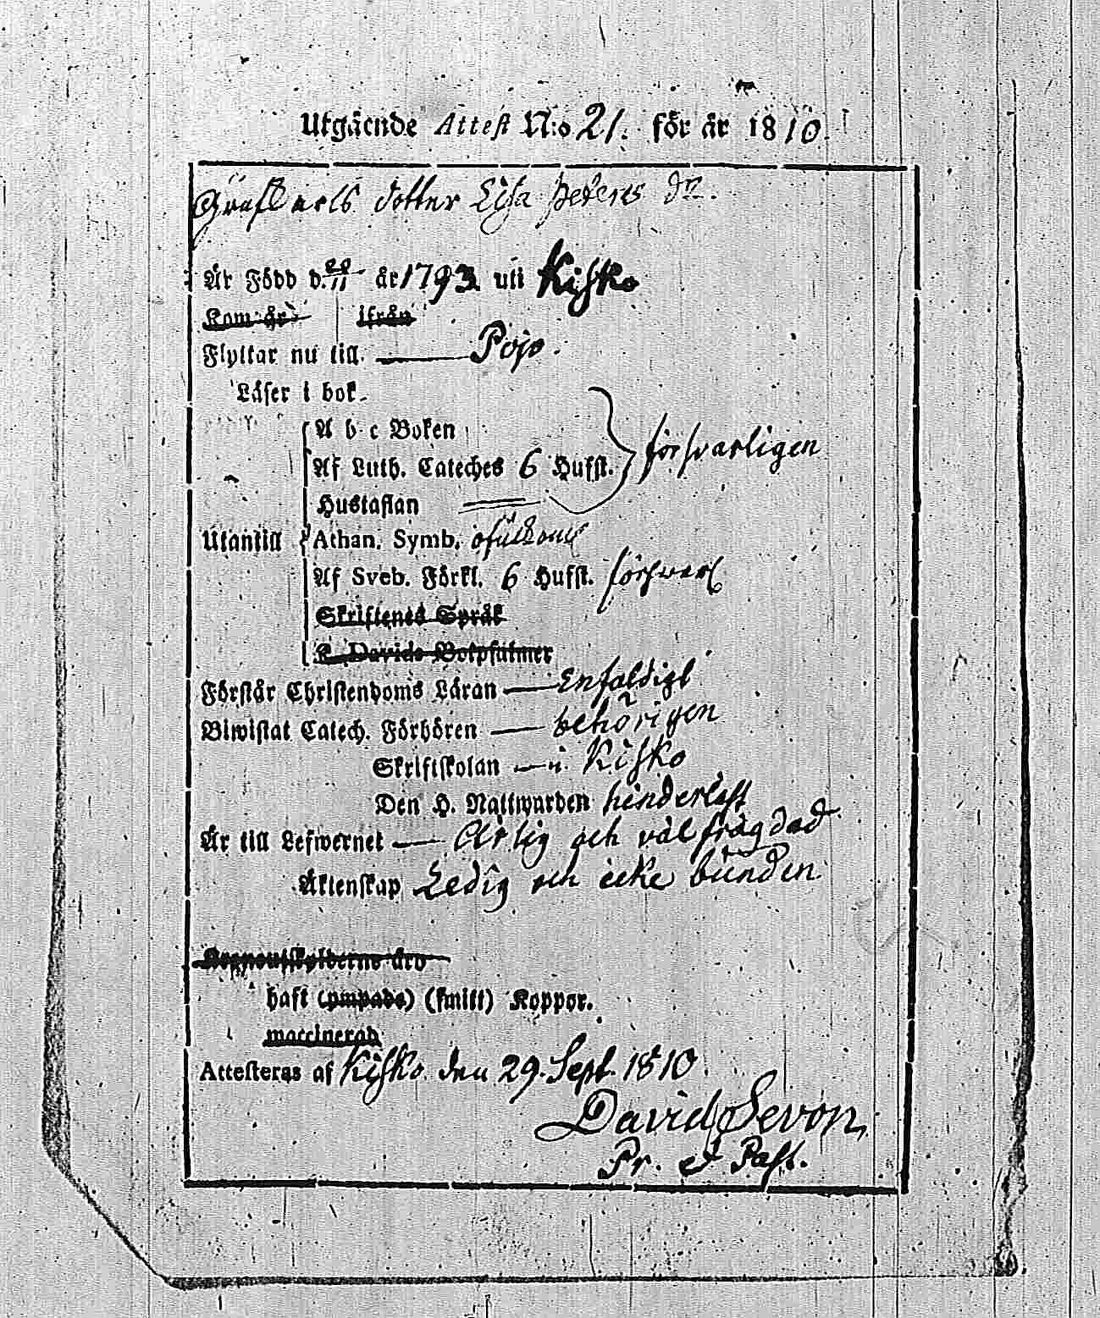 Utgående Attest N:o 21. för år 1810.
dotter Lisa Peters dr.
Är Född d. 20/11 år 1793. uti Kisko
Kom år ifrån
Flyttar nu till. Pojo.
Läser i bok.
A b c Boken
Af Luth. Cateches 6 Hufst. försvarligen
Hustaflan
Utantill Athan. Symb.
Af Sveb. Förkl. 6 Hufst. försvarl
Skriftenes Språk
K. Davids Botpsalmer
Förstår Christendoms Läran enfaldigt
Biwistat Catech. Förhören behörigen
Skriftskolan i Kisko
Den H. Nattwarden hinderlöst
Är till Lefwernet Ärlig och väl frägdad
Äktenskap Ledig och icke bunden
haft (ympade) (smitt) Koppor.
vaccinerad
Attesteras af Kisko den 29. Sept. 1810.
David Sevon,
Pr. et Past.